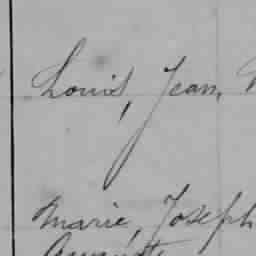 Louis, Jean,
Marie, Joseph